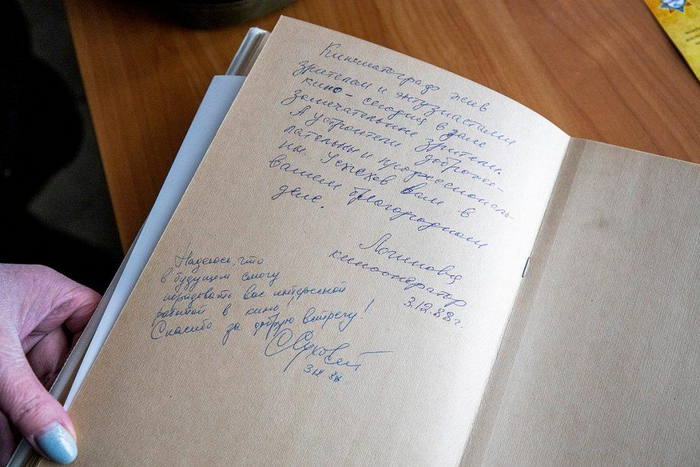 Кинематограф жив
зрителем и энтузиастами
кино – сегодня в зале
замечательные зрители.
А устроители доброже-
лательны и профессиональ-
ны. Успехов вам в
вашем благородном
деле.
кинооператор
3.12.88г.
Надеюсь, что
в будущем смогу
порадовать вас интересной
работой в кино!
Спасибо за добрую встречу!